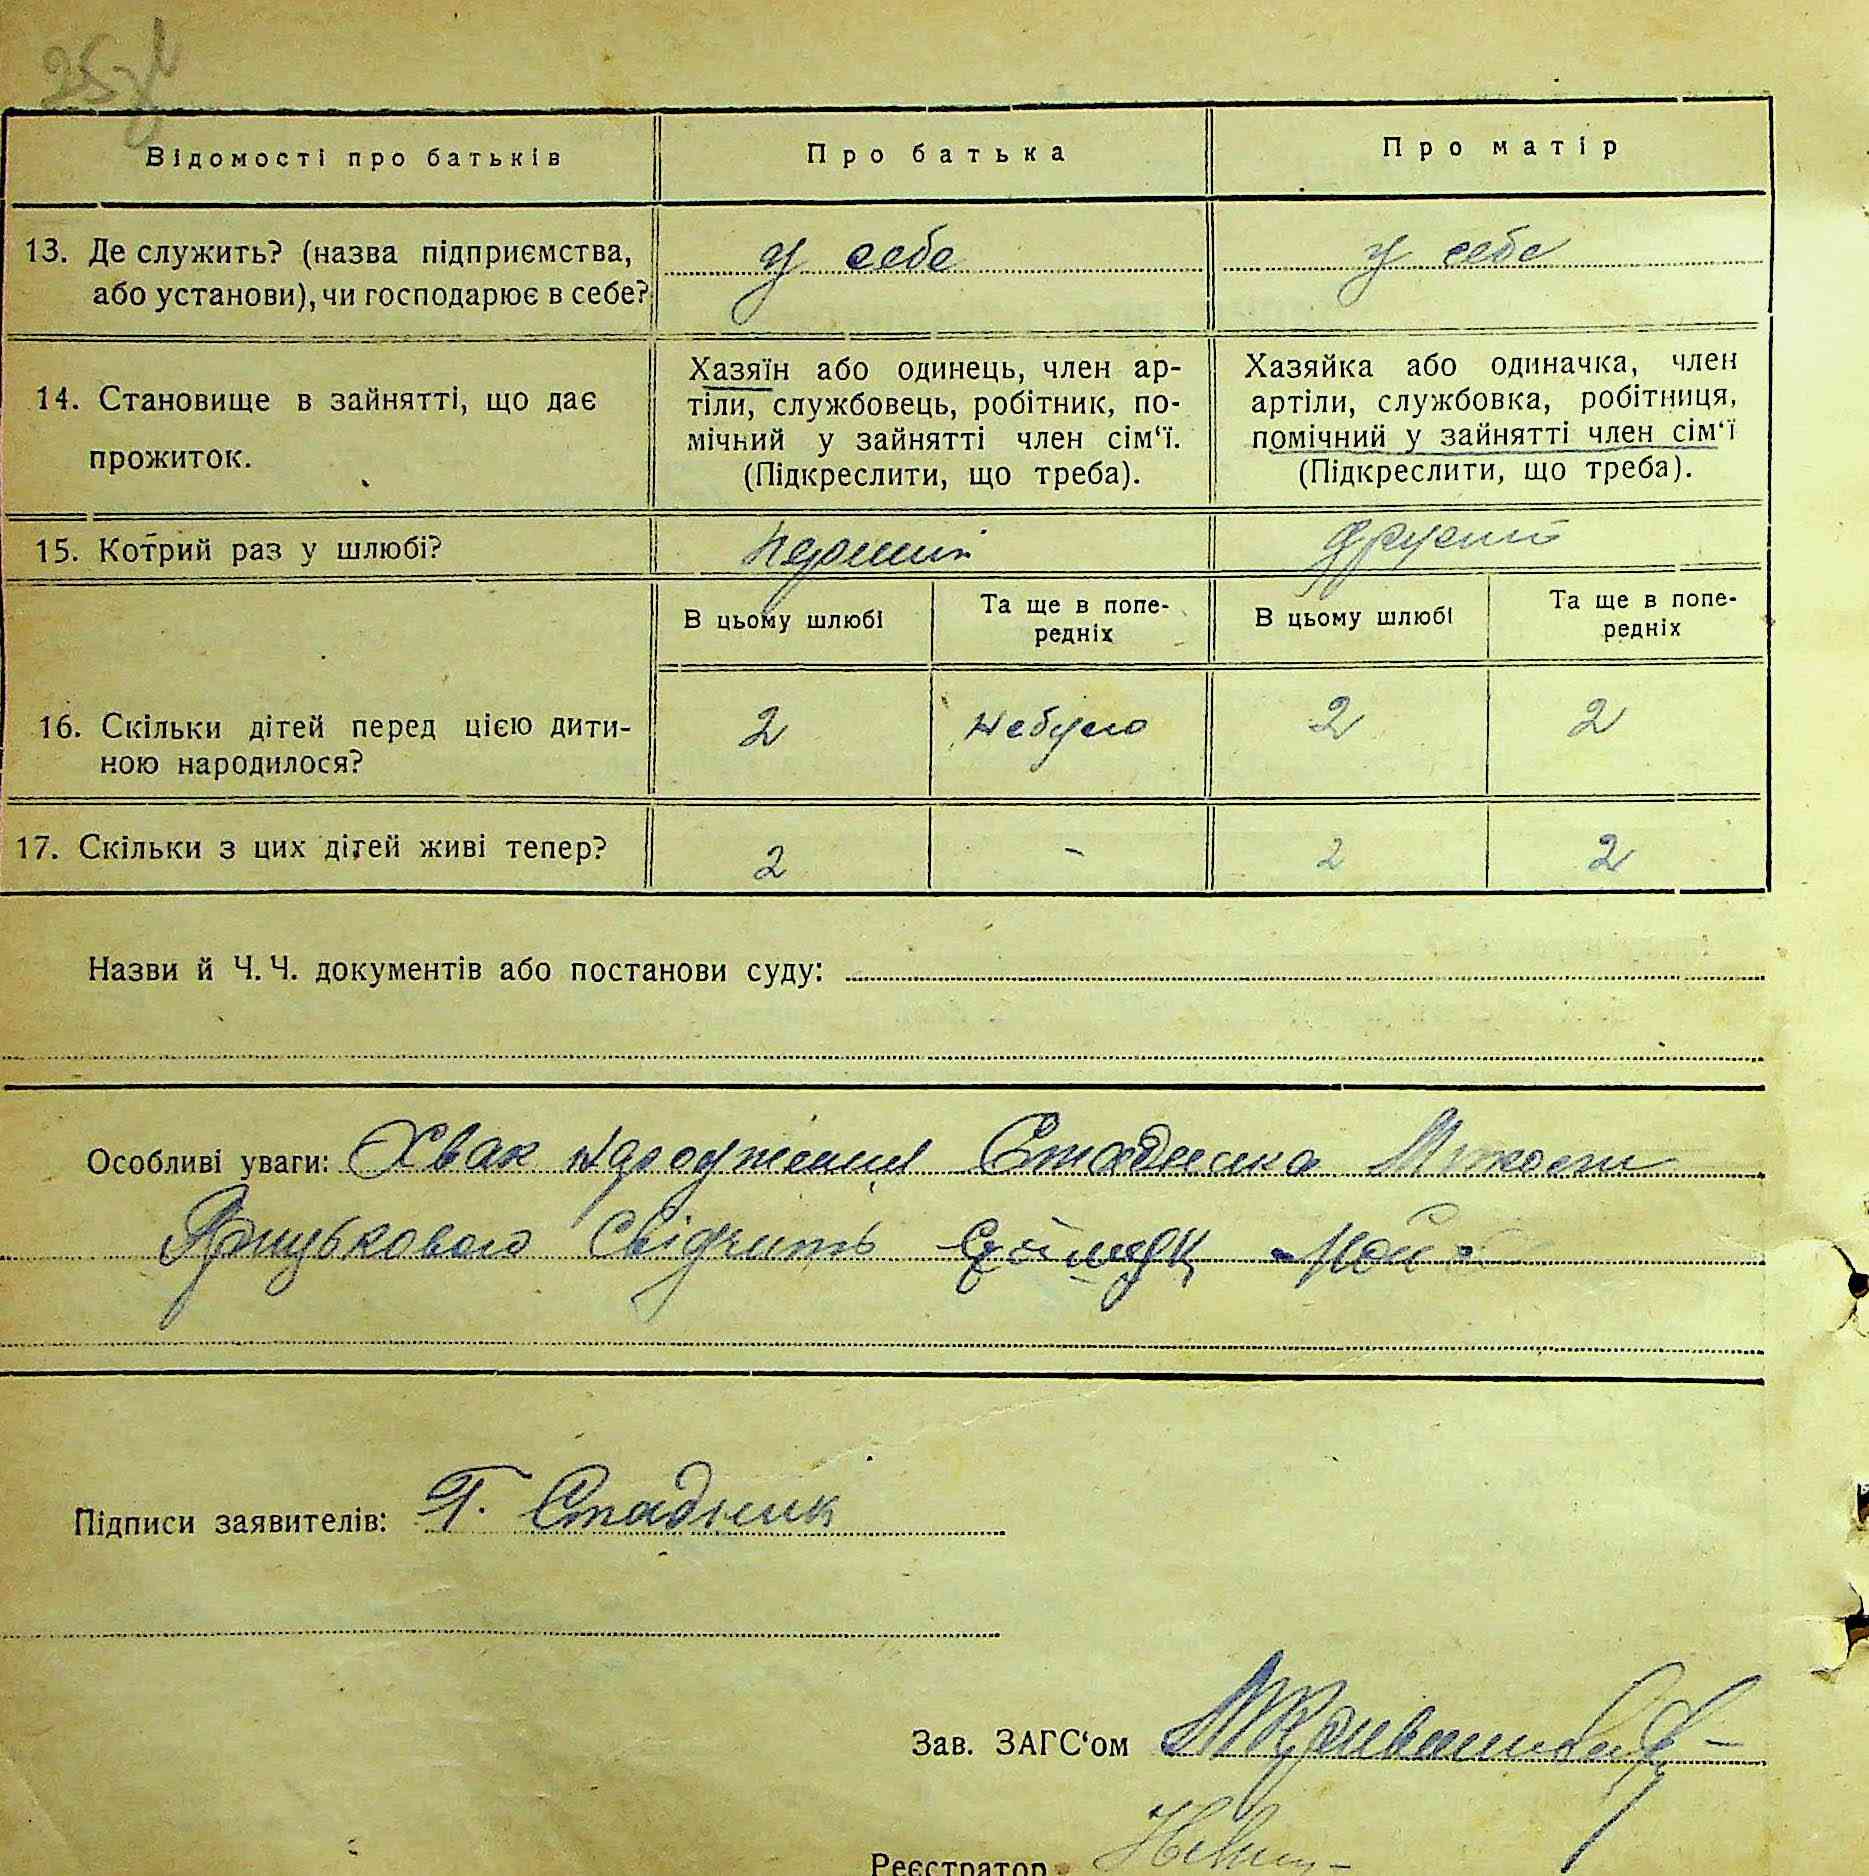 Відомості про батьків
Про батька
Про матір
13. Де служить? (назва підприємства,
або установи), чи господарює в себе?
у себе
у себе
14. Становище в зайнятті, що дає
прожиток.
Хазяїн або одинець, член ар-
тіли, службовець, робітник, по-
мічний у зайнятті член сім‘ї.
(Підкреслити, що треба).
Хазяйка або одиначка, член
артіли, службовка, робітниця,
помічний у зайнятті член сім‘ї
(Підкреслити, що треба).
15. Котрий раз у шлюбі?
перший
другий
В цьому шлюбі
Та ще в попе-
редніх
В цьому шлюбі
Та ще в попе-
редніх
16. Скільки дітей перед цією дити-
ною народилося?
2
небуло
2
2
17. Скільки з цих дітей живі тепер?
2
-
2
2
Назви й Ч. Ч. документів або постанови суду:
Особливі уваги: Хвак народження Стадника
свідчить
Підписи заявителів: Г. Стадник
Зав. ЗАГС‘ом
Реєстратор